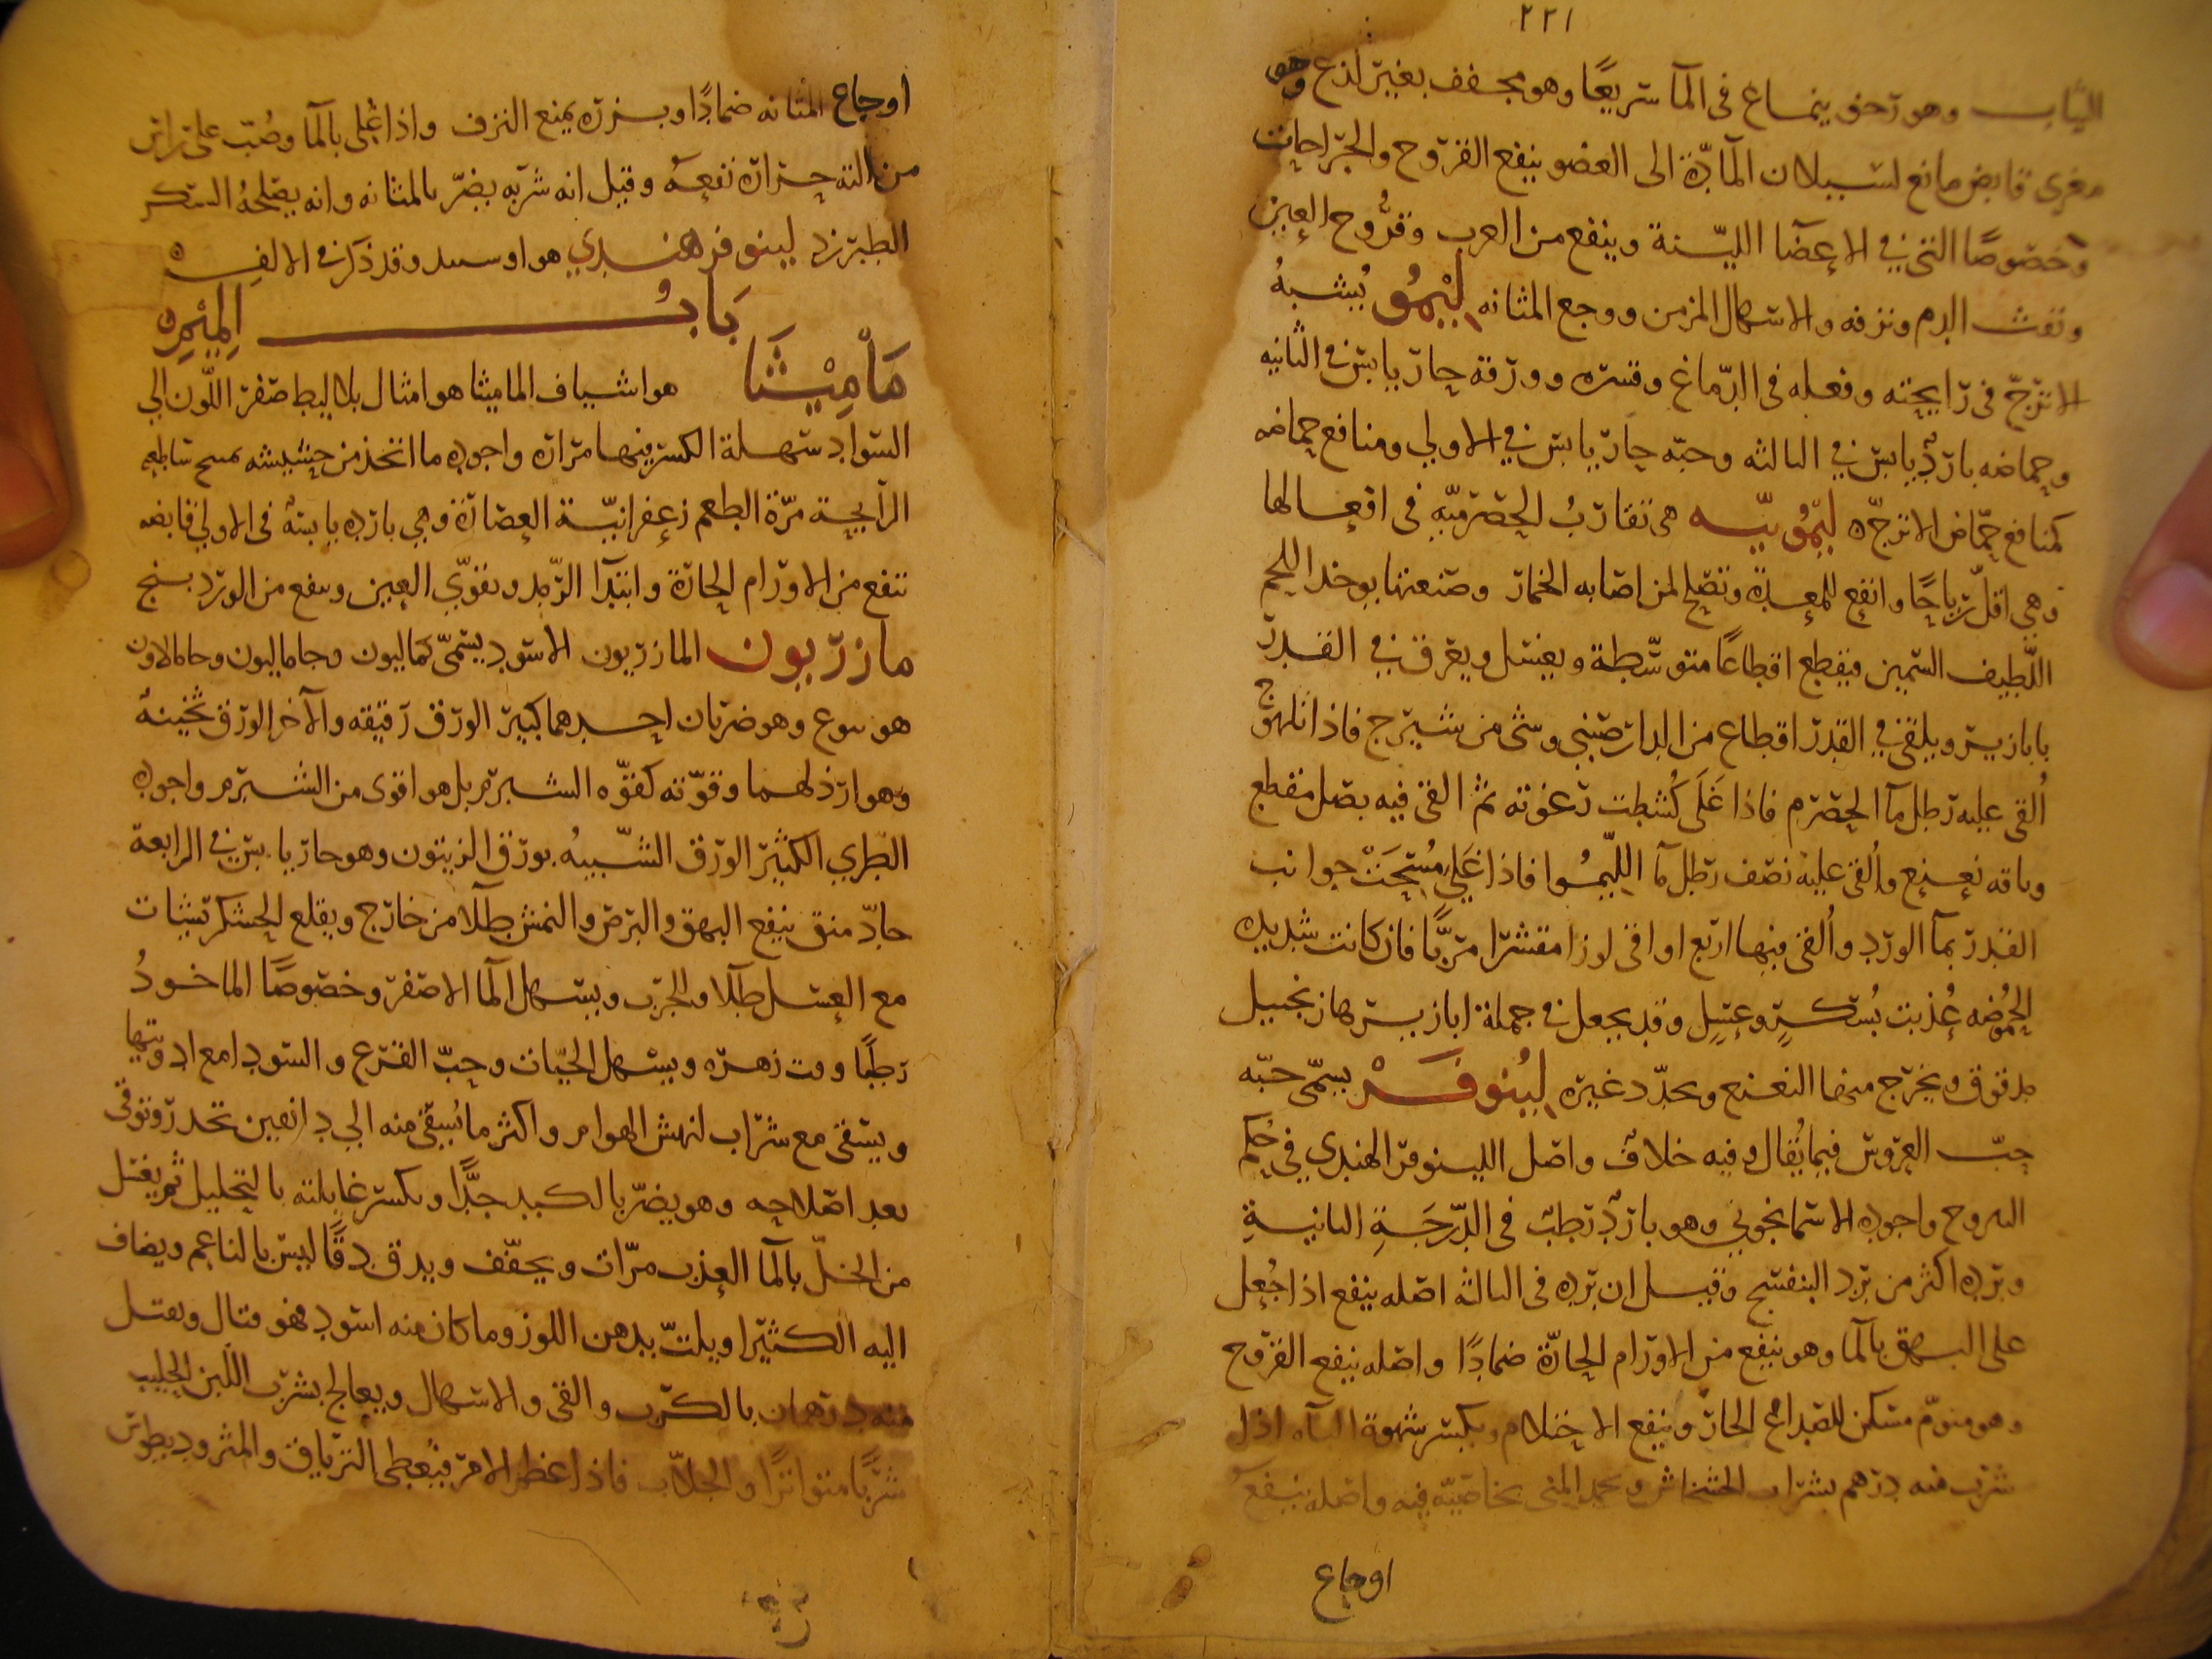 ٢٢١
الثياب وهو رخو ينماع في المآ سريعًا وهو مجفف بغير لذع وهو
مغري قابض مانع لسيلان المآدّة الى العضو ينفع القروح والجراحات
وخصوصًا التي في الاعضآ الليّنة وينفع من الغرب وقرُوح العين
ونفث الدم ونزفه والاسهال المزمن ووجع المثانه لَيْمُو يُشبهُ
الاترجّ في رايحته وفعله في الدّماغ وقشره وورقه حارّ يابس في الثانيه
وحماضه باردٌ يابس في الثالثه وحبّه حارّ يابس في الاولي ومنافع حماضه
كمنافع حمّاض الاترجّ ليْمُويّه هي تقاربُ الحصرميّه في افعالها
وهي اقلّ رياحًا وانفع للمعدة وتصلح لمن اصابه الخمار وصنعتها يوخذ اللحم
اللّطيف السمين فيقطع اقطاعًا متوسّطة ويغسل ويعرق في القدر
بابازير ويلقى في القدر اقطاع من الدارصيني وشي من شيرج فاذا تلهوج
اُلقى عليه رطل مآ الحصرم فاذا غَلَى كُشطت رغوته ثم القى فيه بصل مقطع
وباقه نعنع واُلقى عليه نصف رطل مآ اللّيمُوا فاذا غَلي مُسحَتْ جوانب
القدر بمآ الورد واُلقى فيها اربع اواقى لوزا مقشرا مربًّا فان كانت شديده
الحُموُضه عُذبت بُسكرٍ وعسلٍ وقد يجعل في جملة ابازيرها زنجبيل
مدقوق ويخرج منها النعنع ويجدّد غيره لَيُنوفَرْ يسمّى حبّه
حبّ العروس فيما يُقال وفيه خلافٌ واصل اللينوفر الهندي في حُكم
اليبروح واجوده الاسمانجوني وهو باردٌ رطبٌ في الدّرجَةِ الثانيةِ
وبرده اكثر من برد البنفسج وقيل ان برده في الثالثه اصله ينفع اذا جُعل
على البهق بالمآ وهو ينفع من الاورام الحارّة ضمادًا واصله ينفع القروح
وهو منوّم مسكن للصداع الحارّ وينفع الاحتلام ويكسر شهوة الباه اذا
شرب منه درهم بشراب الخشخاش ويجمد المنى بخاصيّه فيه واصله ينفع
اوجاع
اوجاع المثانه ضمادًا وبزره يمنع النزف واذا غُلى بالمآ وصُبّ على راس
من نالته حراره نفعهُ وقيل انه شربه يضرّ بالمثانه وانه يصلحهُ السكر
الطبرزد لينوفر هندي هو اوسبيد وقد ذكر في الالف
بَابُ المِيْمِ
مَامِيْثَا هو اشياف الماميثا هو امثال بلاليط صفر اللّون الي
السواد سهلة الكسر فيها مراره واجوده ما اتخذ من حشيشه ساطعه
الرآيحة مرّة الطعم زعفرانيّة العصارة وهي بارده يابسةٌ في الاولي قابضه
تنفع من الاورام الحارّة وابتدآ الرّمد وتقوّي العين وينفع من الوردينج
مازريون المازريون الاسود يسمّى كماليون وجاماليون وحامالاون
هو يتوع وهو ضربان احدهما كبير الورق رقيقه والآخر الورق ثخينهُ
وهو ارذلهما وقوّته كقوّه الشبرم بل هو اقوى من الشبرم واجوده
الطري الكثير الورق الشّبيهُ بورق الزيتون وهو حارّ يابس في الرابعة
حادّ منق ينفع البهق والبرص والنمش طلآ من خارج ويقلع الخشكريشات
مع العسل طلآ والجرب ويسهل المآ الاصفر وخصوصًا الماخوذُ
رطبًا وقت زهره ويسهل الحيّات وحبّ القرع والسودا مع ادويتها
ويسقى مع شراب لنهش الهوام واكثر ما يُسقى منه الي دانقين بحذر وتوقي
بعد اصلاحه وهو يضرّ بالكبد جدًّا ويكسر غايلته بالتحليل ثم يغسل
من الخلّ بالمآ العذب مرّات ويجفّف ويدق دقًا ليس بالناعم ويضاف
اليه الكثيرا ويلتّ بدهن اللوز وما كان منه اسود فهو قتال ويقتل
منه درهمان بالكرب والقى والاسهال ويعالج بشرب اللبن الحليب
شربًا متواترًا والجلاّب فاذا عظم الامر فيُعطى الترياق والمثروديطوس